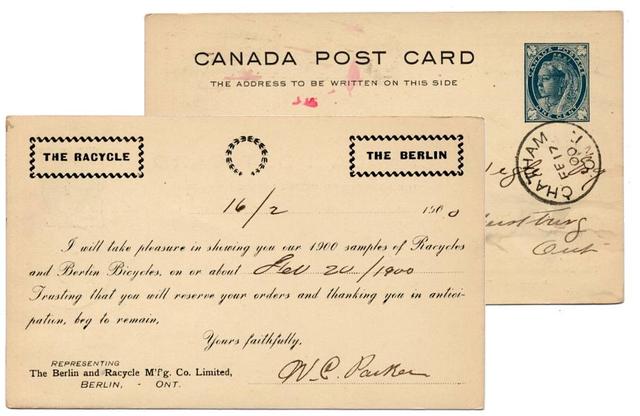 CANADA POST CARD
THE ADDRESS TO BE WRITTEN ON THIS SIDE
CANADA POSTAGE
ONE CENT
CHATHAM
FE 17
00
ONT.
Ont
THE RACYCLE
THE BERLIN
16/2 1900
I will take pleasure in showing you our 1900 samples of Racycles
and Berlin Bicycles, on or about Feb 20/1900
Trusting that you will reserve your orders and thanking you in antici-
pation, beg to remain,
Yours faithfully,
REPRESENTING
The Berlin and Racycle M'f'g. Co. Limited,
BERLIN, - ONT.
W. C. Parker